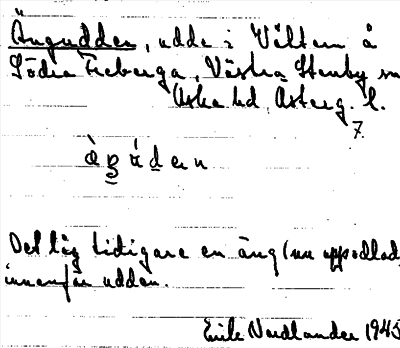 Ängudden, udde i Vättern å
Södra Freberga, Västra Stenby sn
Aska hd, Österg. l.
7.
Det låg tidigare en äng (nu uppodlad)
innanför udden.
Emil Nordlander 1945